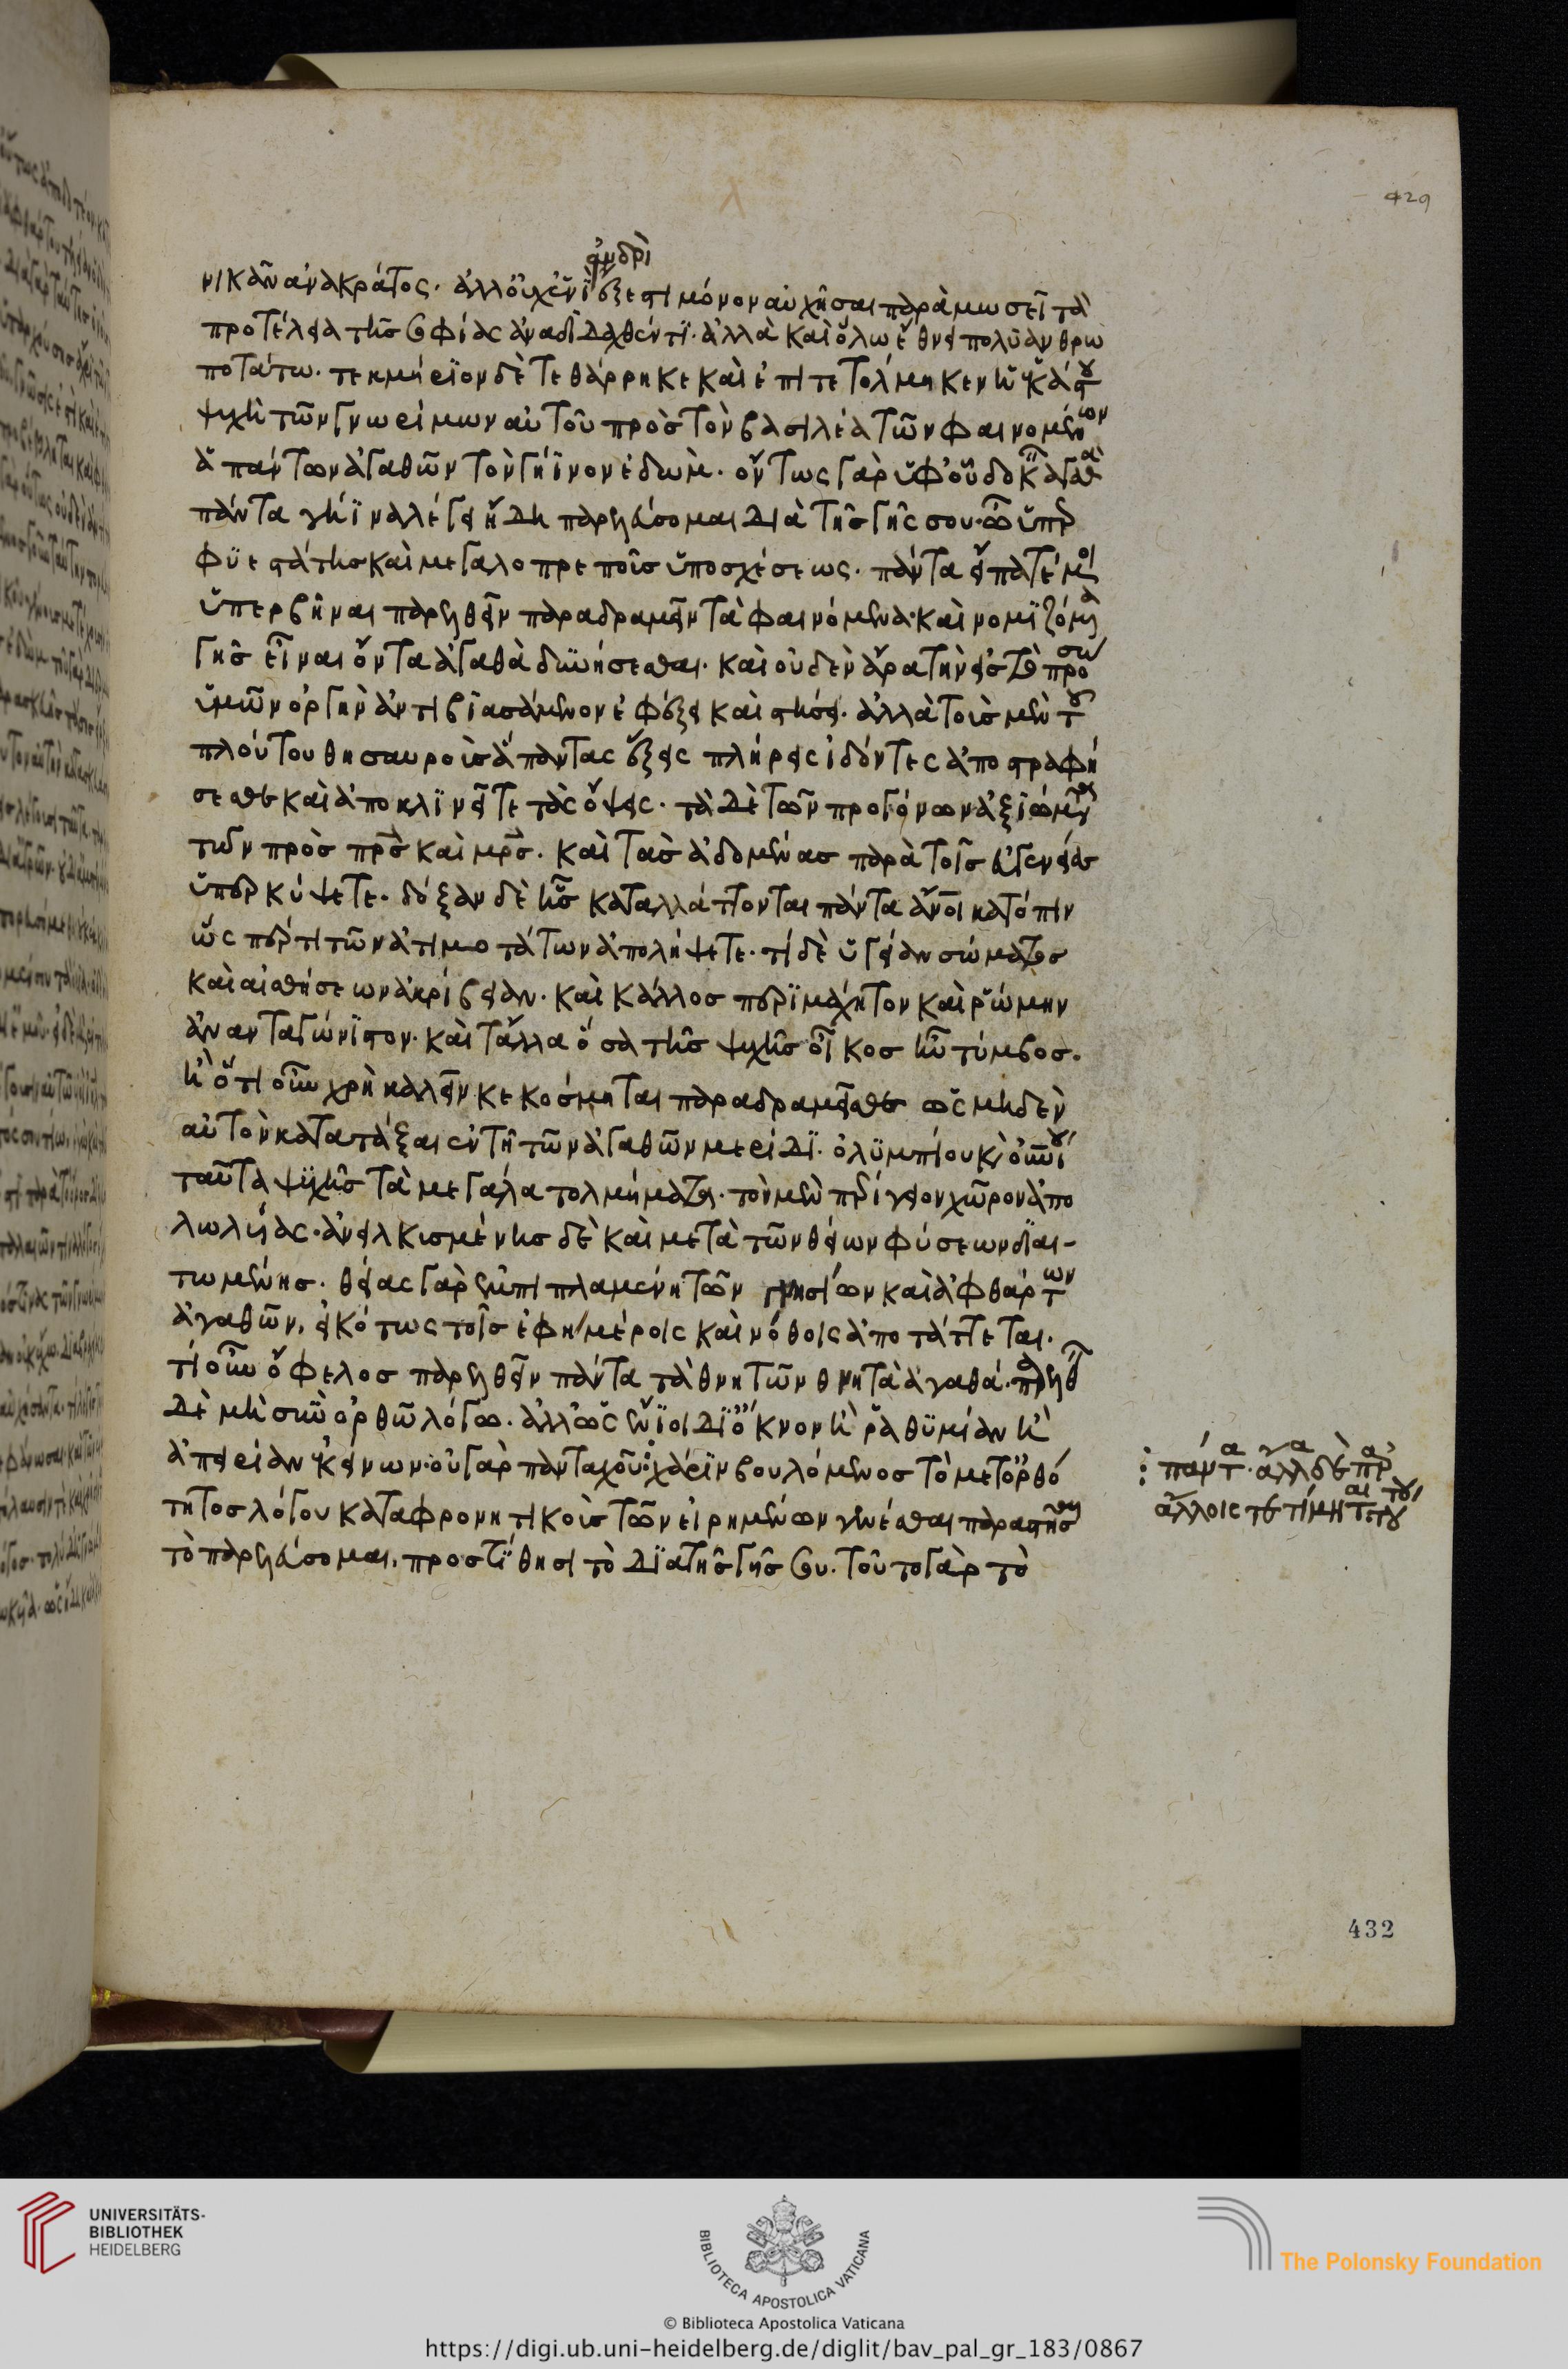 429
ἀνδρὶ
νικᾶν ἀνὰ κράτος. ἀλλ' οὐχ ἑνὶ ἔξεστι μόνον αὐχῆσαι παρὰ μωσεῖ τὰ
προτέλεια τῆς σοφίας ἀναδιδαχθέντι. ἀλλὰ καὶ ὅλω ἔθνει πολυανθρω
ποτάτω. τεκμήριον δὲ τεθάρρηκε καὶ ἐπιτετόλμηκεν ἡ ἑκάστου
ψυχὴ τῶν γνωρίμων αὐτοῦ πρὸς τὸν βασιλέα τῶν φαινομένων
ἁπάντων ἀγαθῶν τὸν γήϊνον ἐδώμ. ὄντως γὰρ ὑφ' οὗ δοκ ἀγαθὰ
πάντα γήϊνα λέγει ἤδη παρελεύσομαι διὰ τῆς γῆς σου. ὢ ὑπερ
φυεστάτης καὶ μεγαλοπρεποῦς ὑποσχέσεως. πάντα εἴπατέ μοι
ὑπερβῆναι παρελθεῖν παραδραμεῖν τὰ φαινόμενα καὶ νομιζόμενα
γῆς εἶναι ὄντα ἀγαθὰ δυνήσεσθαι. καὶ οὐδὲν ἄρα τὴν εἰς τὸ πρόσω
ὑμῶν ὁρμὴν ἀντιβιασάμενον ἐφέξει καὶ στήσει. ἀλλὰ τοὺς μὲν τοῦ
πλούτου θησαυροὺς ἅπαντας ἑξῆς πλήρεις ἰδόντες ἀποστραφή
σεσθε καὶ ἀποκλινεῖτε τὰς ὄψεις. τὰ δὲ τῶν προγόνων ἀξιώματα
τῶν πρὸς πρς καὶ μρς. καὶ τὰς ἀδομένας παρὰ τοῖς εὐγενείας
ὑπερκύψετε. δόξαν δὲ ἧς καταλλάττονται πάντα ἄνοι κατόπιν
ὥς περ τι τῶν ἀτιμοτάτων ἀπολήψετε. τί δὲ ὑγείαν σώματος
καὶ αἰσθήσεων ἀκρίβειαν. καὶ κάλλος περιμάχητον καὶ ῥώμην
ἀνανταγώνιστον. καὶ τἄλλα ὅσα τῆς ψυχῆς οἶκος ἢ τύμβος.
ἢ ὅ τι οὖν χρὴ καλεῖν κεκόσμηται παραδραμεῖσθε ὡς μηδὲν
αὐτὸν κατατάξαι ἐν τῆ τῶν ἀγαθῶν μερίδι. ὀλυμπίου καὶ οὐνίου
ταῦτα ψυχῆς τὰ μεγάλα τολμήματα. τὸν μὲν περίγειον χῶρον ἀπο
λωλυίας. ἀνειλκισμένης δὲ καὶ μετὰ τῶν θείων φύσεων διαι-
τωμένης. θέας γὰρ ἐμπιπλαμένη τῶν γνησίων καὶ ἀφθάρτων
ἀγαθῶν, εἰκότως τοῖς ἐφημέροις καὶ νόθοις ἀποτάττεται.
τί οὖν ὄφελος παρελθεῖν πάντα τὰ θνητῶν θνητὰ ἀγαθά. παρελθεῖν
δὲ μὴ σὺν ὀρθῶ λόγω. ἀλλ' ὡς ἔνιοι δι' ὄκνον ἢ ῥαθυμίαν ἢ
ἀπειρίαν ἐκείνων. οὐ γὰρ πανταχοῦ: χάριν βουλόμενος τὸ μετ' ὀρθό
τητος λόγου καταφρονητικοὺς τῶν εἰρημένων γενέσθαι παραστῆσαι
τὸ παρελεύσομαι, προστίθησι τὸ διὰ τῆς γῆς σου. τοῦτο γὰρ τὸ
: πάντα. ἀλλὰ δὲ παρ'
ἄλλοις τετίμηται τού του
432
UNIVERSITÄTS-
BIBLIOTHEK
HEIDELBERG
BIBLIOTECA APOSTOLICA VATICANA
The Polonsky Foundation
© Biblioteca Apostolica Vaticana
https://digi.ub.uni-heidelberg.de/diglit/bav_pal_gr_183/0867